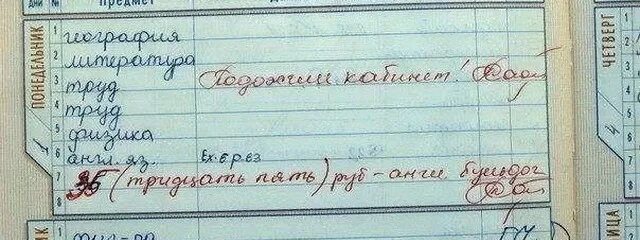 ДНИ № ПРЕДМЕТ
ПОНЕДЕЛЬНИК
1 география
2 литература
3 труд Подожгли кабинет!
4 труд
5 физика
6 англ. яз. Ex. 6 p. 83
7 35 (тридцать пять) руб - англ бульдог
8
1
фиг-ра
ЧЕТВЕРГ
4